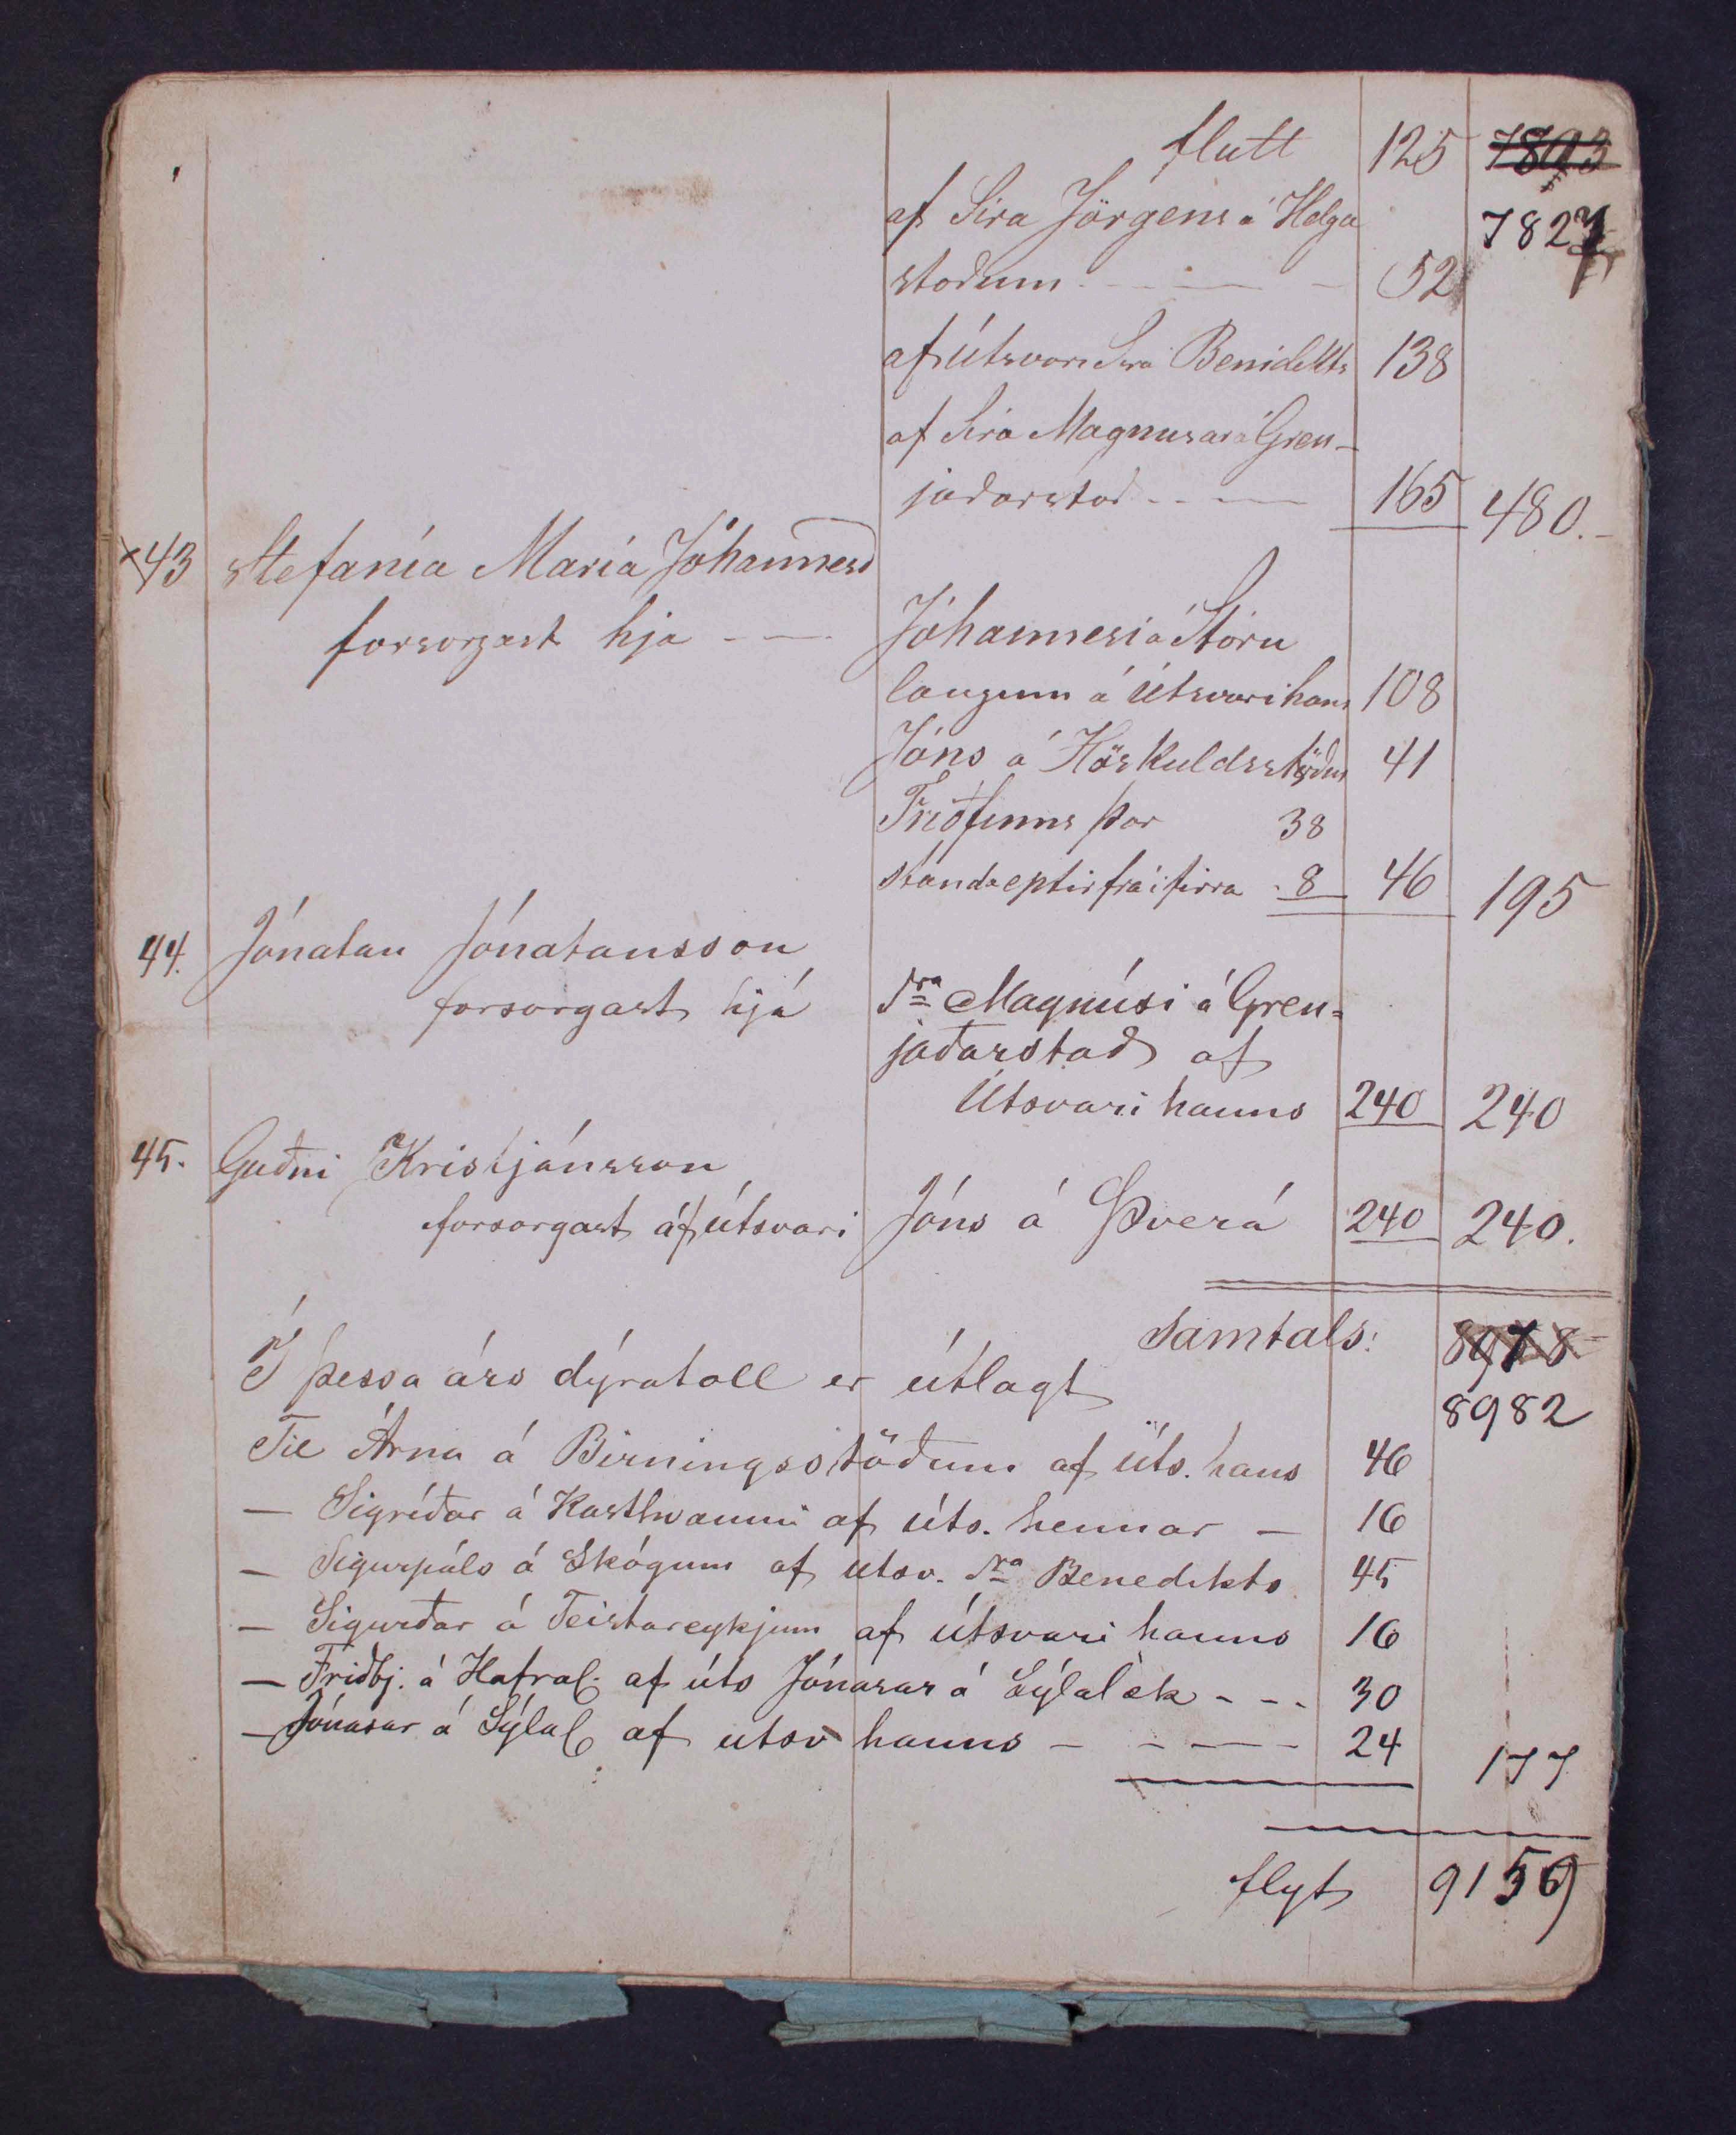 flutt 125 7893
af Sira Jörgens á Helga 7827
stodum 52
af Útsvari Sira Benidikts 138
af Sira Magnusar á Gren-
jadarstad 165 480.-
×43 Stefanía María Jóhannesd
forsorgast hja Jóhannesi á Stóru
laugum á Útsvari hans 108
Jóns á Höskuldsstöðum 41
Friðfinns þar 38
standa eptir frá i firra 8 46 195
44. Jónatan Jónatansson
forsorgast hjá Sra Magnúsi á Gren=
jaðarstað af
Útsvari hanns 240 240
45. Guðni Kristjánsson
forsorgast af útsvari Jóns á Þverá 240 240.
Samtals: 8978
Í þessa árs dýratoll er útlagt 8982
Til Árna á Birningsstöðum af úts. hans 46
— Sigríðar á Kasthvammi af úts. hennar — 16
— Sigurpáls á Skógum af utsv. Sra Benedikts 45
— Sigurðar á Teistareykjum af útsvari hanns 16
— Friðbj. á Hafral. af úts Jónasar á Sýlalæk - - - 30
— Jónasar á Sýlal af utsv hanns — - - — - 24 177
flyt 9159